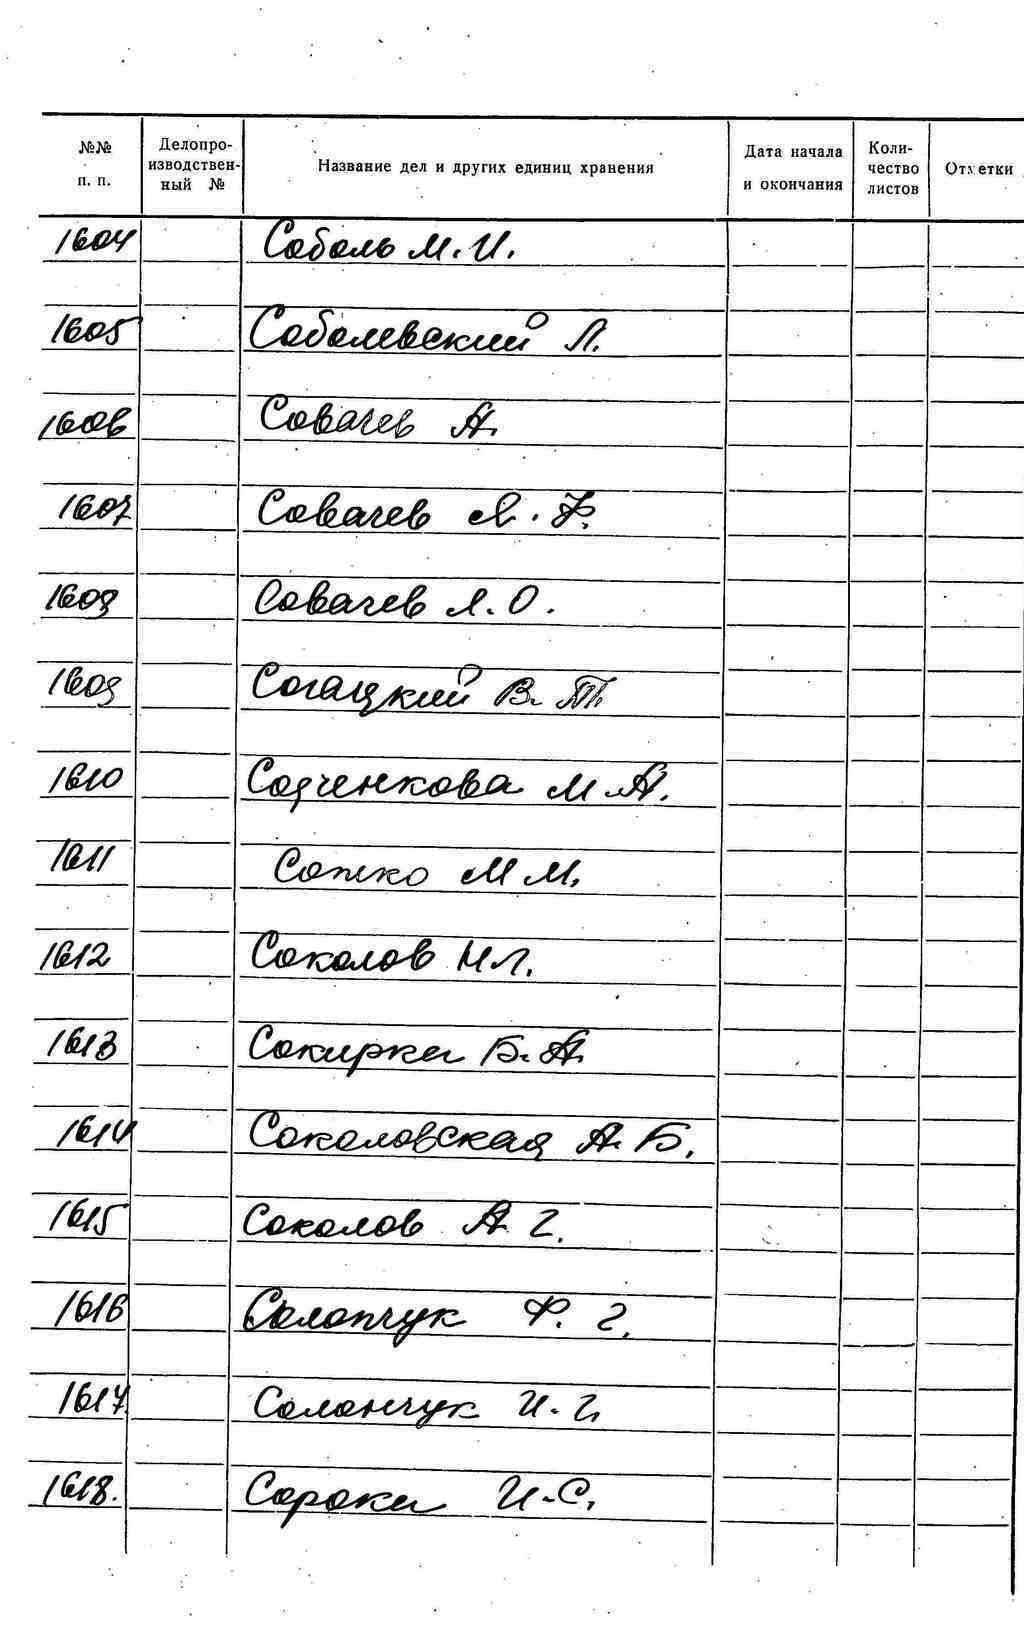 №№ п. п. Делопроизводствен-ный № Название дел и других единиц хранения Дата начала и окончания Коли-чество листов Отметки
1604 Соболь М. И.
1605 Соболевский Л.
1606 Совачев А.
1607 Совачев А. Ф.
1608 Совачев Л. О.
1609 Согацкий В. Т.
1610 Содченкова М. А.
1611 Сотко М М.
1612 Соколов Н Л.
1613 Сокирка Б. А.
1614 Соколовская А. Б.
1615 Соколов А Г.
1616 Солопчук Ф. Г.
1617 Солончук И. Г.
1618. Сорока И. С.